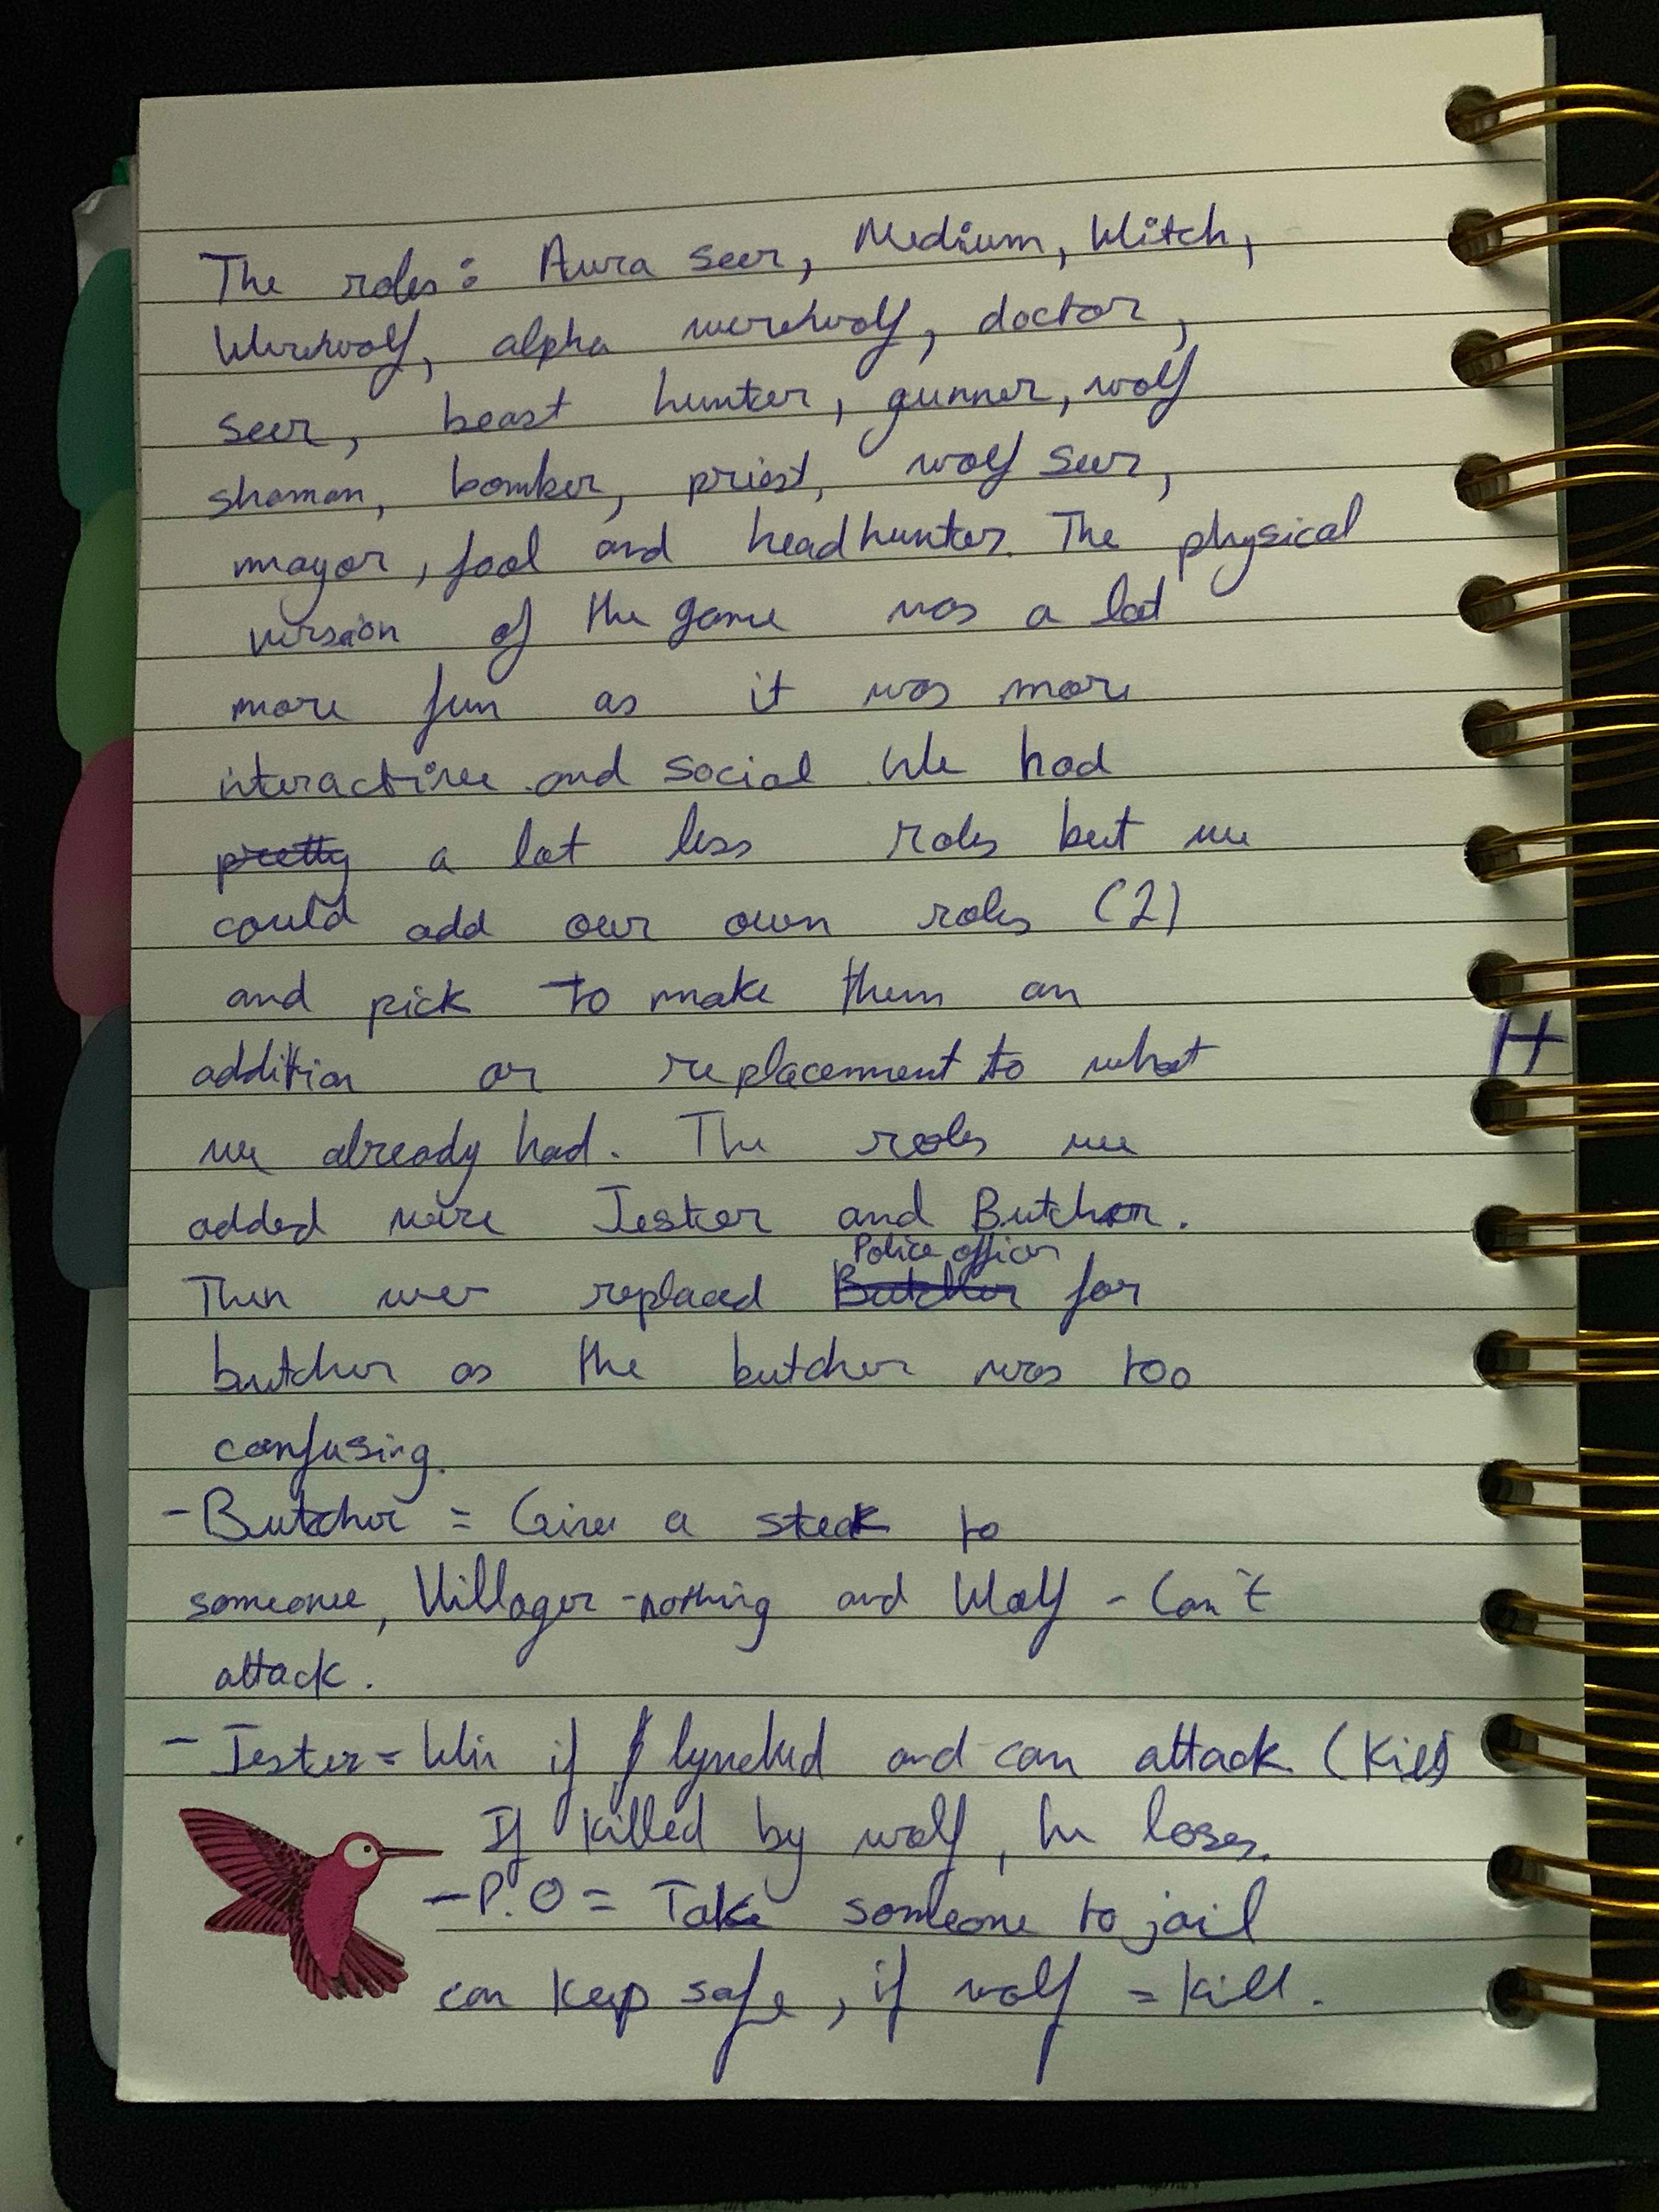 The roles: Aura seer, Medium, Witch,
Werewolf, alpha werewolf, doctor,
seer, beast hunter, gunner, wolf
shaman, bomber, priest, wolf seer,
mayor, fool and headhunter. The physical
version of the game was a lot
more fun as it was more
interactive and social. We had
pretty a lot less roles but we
could add our own roles (2)
and pick to make them an
H
addition or replacement to what
we already had. The roles we
added were Jester and Butcher.
Police officer
Then we replaced Butcher for
butcher as the butcher was too
confusing.
- Butcher = Gives a steak to
someone, Villager - nothing and Wolf - Can't
attack.
- Jester = Win if lynched and can attack (Kill)
If killed by wolf, he loses.
- P.O = Take someone to jail
can keep safe, if wolf = kill.